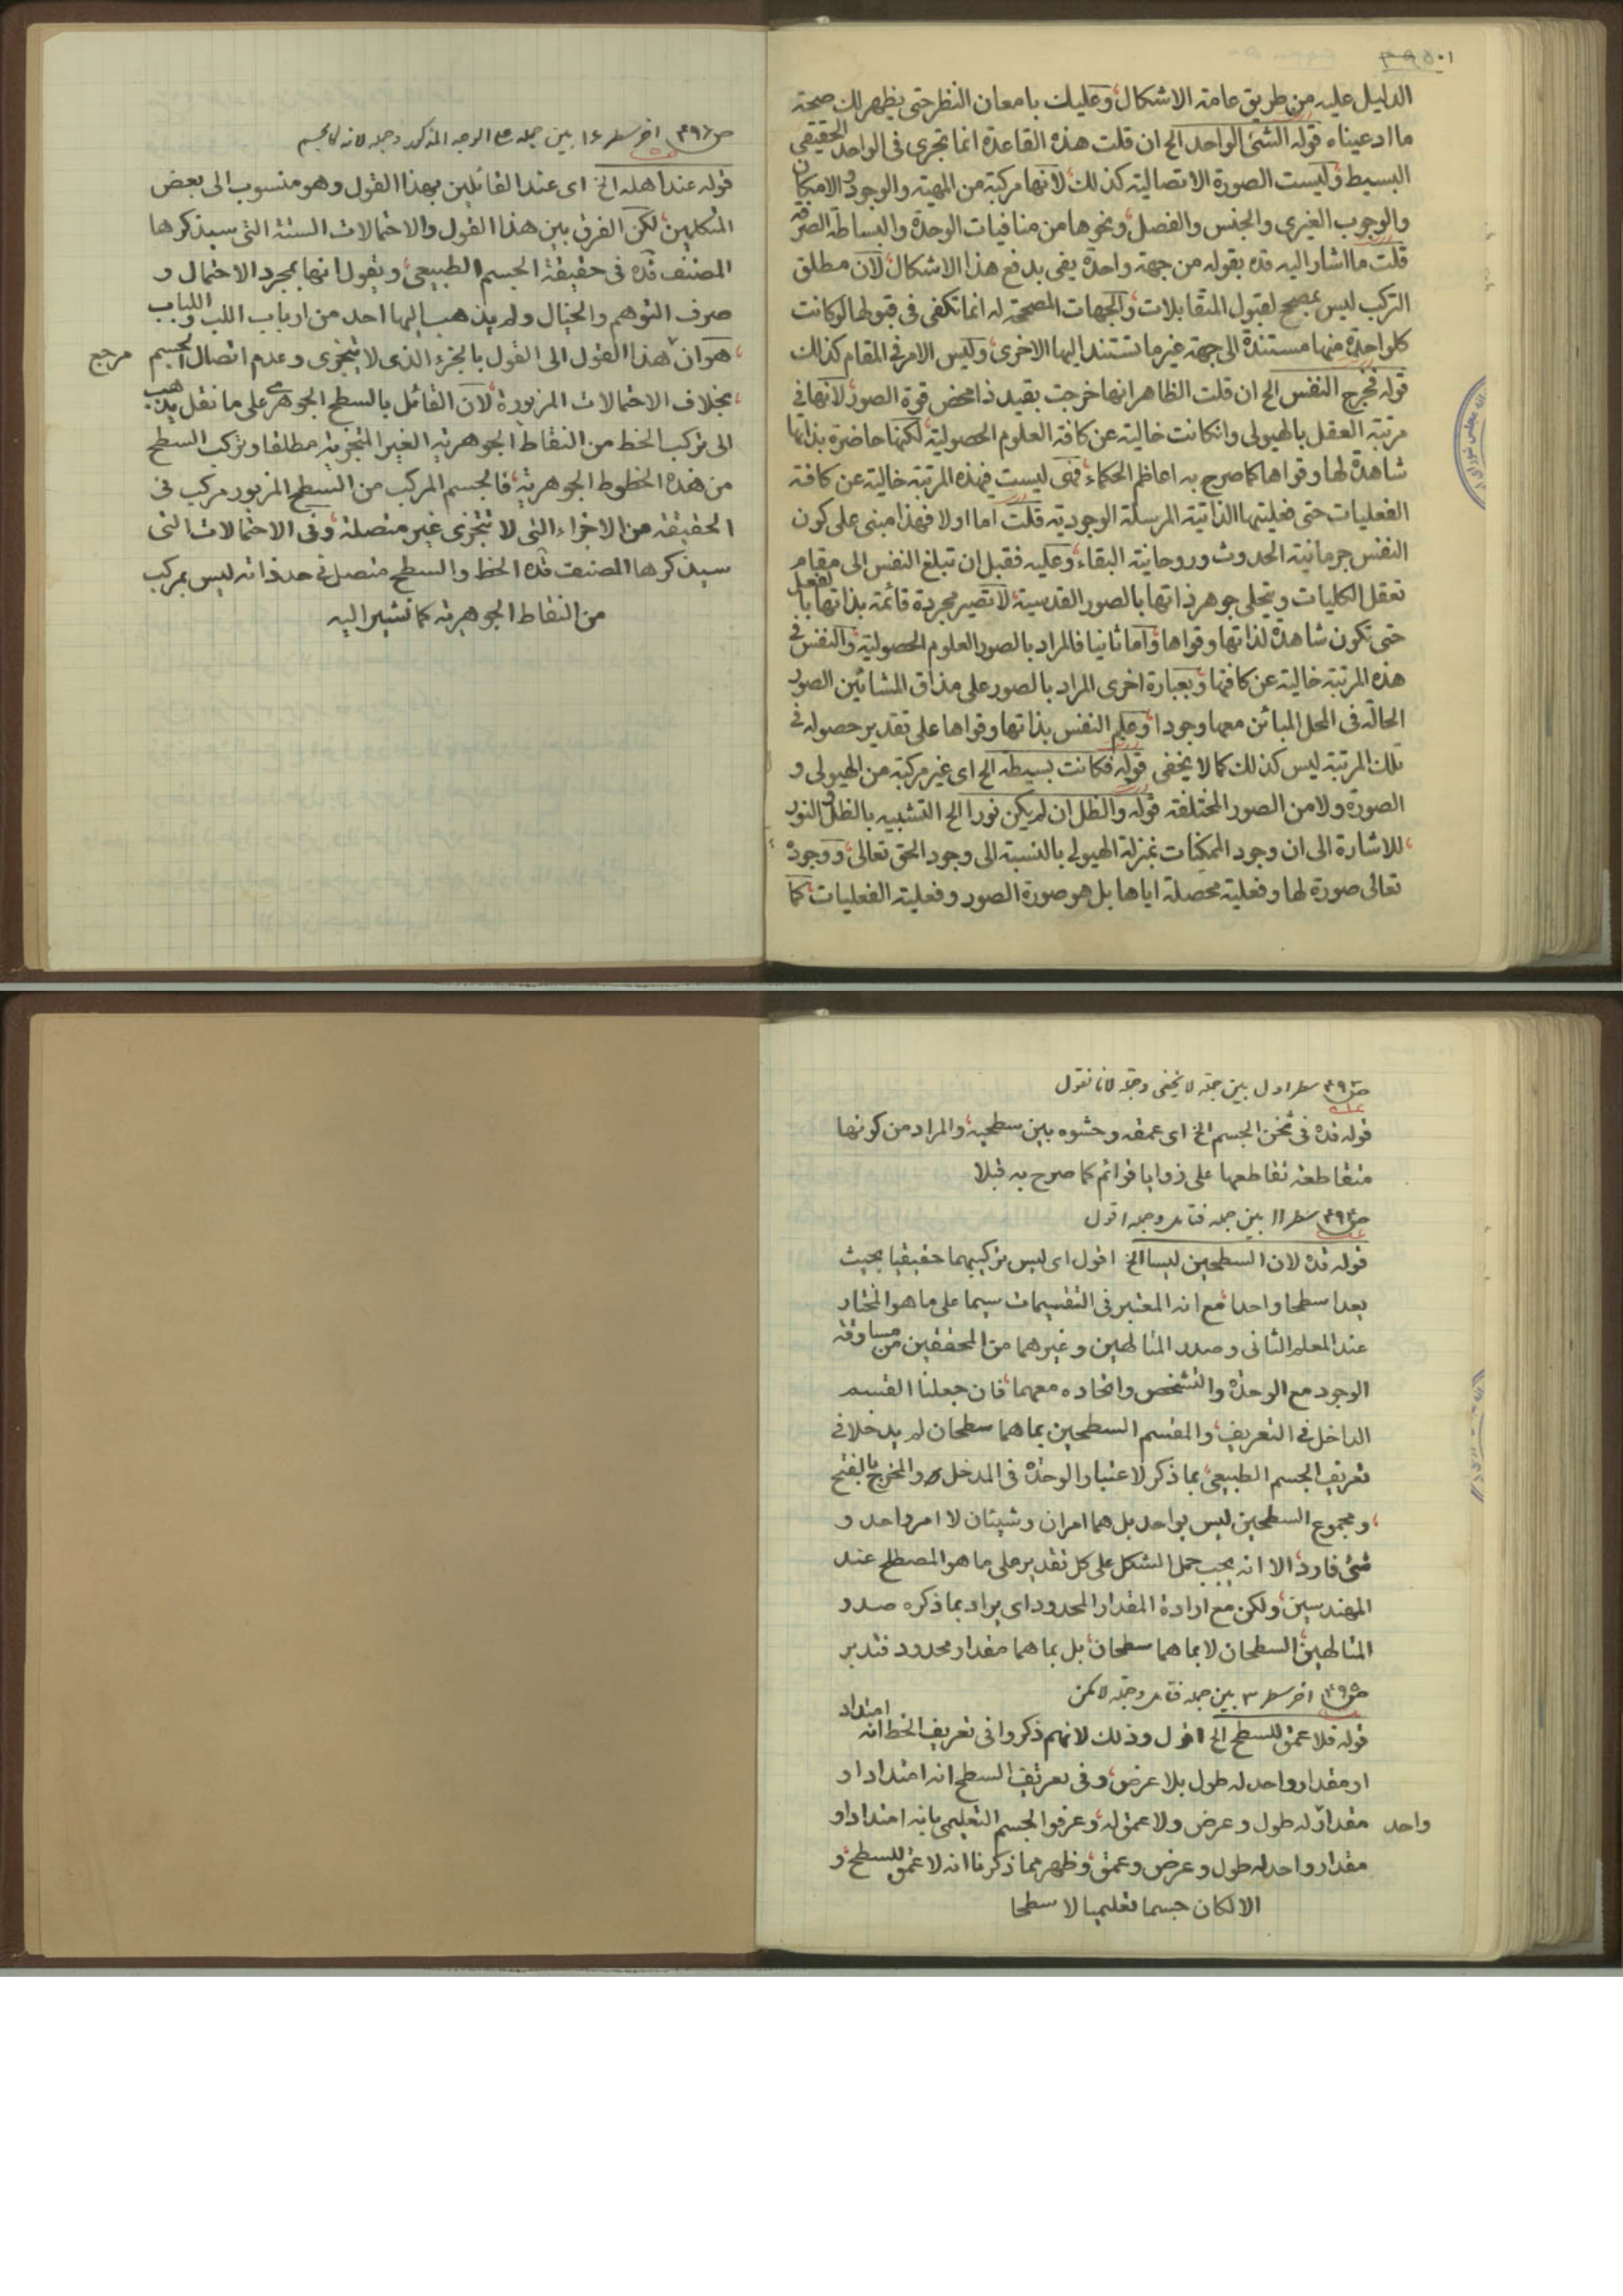 الدليل عليه من طريق عامة الاشكال وعليك بامعان النظر حتى يظهر لك صحة
ما ادعيناه قوله الشئ الواحد الخ ان قلت هذه القاعدة انما تجرى فى الواحد الحقيقى
البسيط وليست الصورة الاتصالية كذلك لانها مركبة من المهية والوجود والامكان
والوجوب الغيرى والجنس والفصل ونحوها من منافيات الوحدة والبساطة الصرفة
قلت ما اشار اليه قده بقوله من جهة واحدة يفى بدفع هذا الاشكال لان مطلق
التركب ليس بمصحح لقبول المتقابلات والجهات المصححة له انما تكفى فى قبولها لو كانت
كلواحدة منها مستندة الى جهة غير ما تستند اليها الاخرى وليس الامر فى المقام كذلك
قوله فخرج النفس الخ ان قلت الظاهر انها خرجت بقيد ذا محض قوة الصور لانها فى
مرتبة العقل بالهيولى وانكانت خالية عن كافة العلوم الحصولية لكنها حاضرة بذاتها
شاهدة لها وقواها كما صرح به اعاظم الحكماء فهى ليست فى هذه المرتبة خالية عن كافة
الفعليات حتى فعليتها الذاتية المرسلة الوجودية قلت اما اولا فهذا مبنى على كون
النفس جرمانية الحدوث وروحانية البقاء وعليه فقبل ان تبلغ النفس الى مقام
تعقل الكليات ويتجلى جوهر ذاتها بالصور القدسية لا تصير مجردة قائمة بذاتها بالفعل
حتى تكون شاهدة لذاتها وقواها واما ثانيا فالمراد بالصور العلوم الحصولية والنفس فى
هذه المرتبة خالية عن كافتها وبعبارة اخرى المراد بالصور على مذاق المشائين الصور
الحالة فى المحل المبائن معها وجودا وعلم النفس بذاتها وقواها على تقدير حصوله فى
تلك المرتبة ليس كذلك كما لا يخفى قوله فكانت بسيطة الخ اى غير مركبة من الهيولى و
الصورة ولا من الصور المختلفة قوله والظل ان لم يكن نورا الخ التشبيه بالظل والنور
للاشارة الى ان وجود الممكنات بمنزلة الهيولى بالنسبة الى وجود الحق تعالى ووجوده
تعالى صورة لها وفعلية محصلة اياها بل هو صورة الصور وفعلية الفعليات كما
اخر سطر ١٦ بين جمله الوجه المذكور وجمله لانه
قوله عند اهله الخ اى عند القائلين بهذا القول وهو منسوب الى بعض
المتكلمين لكن الفرق بين هذا القول والاحتمالات الستة التى سيذكرها
المصنف قده فى حقيقة الجسم الطبيعى ويقول انها بمجرد الاحتمال و
صرف التوهم والخيال ولم يذهب اليها احد من ارباب اللب واللباب
هو ان هذا القول الى القول بالجزء الذى لا يتجزى وعدم اتصال الجسم مرجع
بخلاف الاحتمالات المزبورة لان القائل بالسطح الجوهرى على ما نقل يذهب
الى تركب الخط من النقاط الجوهرية الغير المتجزية مطلقا وتركب السطح
من هذه الخطوط الجوهرية فالجسم المركب من السطح المزبور مركب فى
الحقيقة من الاجزاء التى لا تتجزى غير متصلة وفى الاحتمالات التى
سيذكرها المصنف قده الخط والسطح متصل فى حد ذاته ليس بمركب
من النقاط الجوهرية كما تشير اليه
سطر اول بين جمله لا يخفى وجمله لانا نقول
قوله قده فى ثخن الجسم الخ اى عمقه وحشوه بين سطحيه والمراد من كونها
متقاطعة تقاطعها على زوايا قوائم كما صرح به قبلا
سطر ١١ بين جمله وجمله اقول
قوله قده لان السطحين ليسا الخ اقول اى ليس تركيبهما حقيقيا بحيث
يعدا سطحا واحدا مع انه المعتبر فى التقسيمات سيما على ما هو المختار
عند المعلم الثانى وصدر المتالهين وغيرهما من المحققين من مساوقة
الوجود مع الوحدة والتشخص واتحاده معهما فان جعلنا القسم
الداخل فى التعريف والمقسم السطحين بما هما سطحان لم يدخلا فى
تعريف الجسم الطبيعى بما ذكر لاعتبار الوحدة فى المدخل والمخرج بالفتح
ومجموع السطحين ليس بواحد بل هما امران وشيئان لا امر واحد و
شئ فارد الا انه يجب حمل الشكل على كل تقدير على ما هو المصطلح عند
المهندسين ولكن مع ارادة المقدار المحدود اى يراد بما ذكره صدر
المتالهين السطحان لا بما هما سطحان بل بما هما مقدار محدود فتدبر
اخر سطر ٣ بين جمله وجمله لا يمكن
قوله فلا عمق للسطح الخ اقول وذلك لانهم ذكروا فى تعريف الخط انه امتداد
او مقدار واحد له طول بلا عرض وفى تعريف السطح انه امتداد او
مقدار له طول وعرض ولا عمق له وعرفوا الجسم التعليمى بانه امتداد او واحد
مقدار واحد له طول وعرض وعمق وظهر مما ذكرنا انه لا عمق للسطح و
الا لكان جسما تعليميا لا سطحا